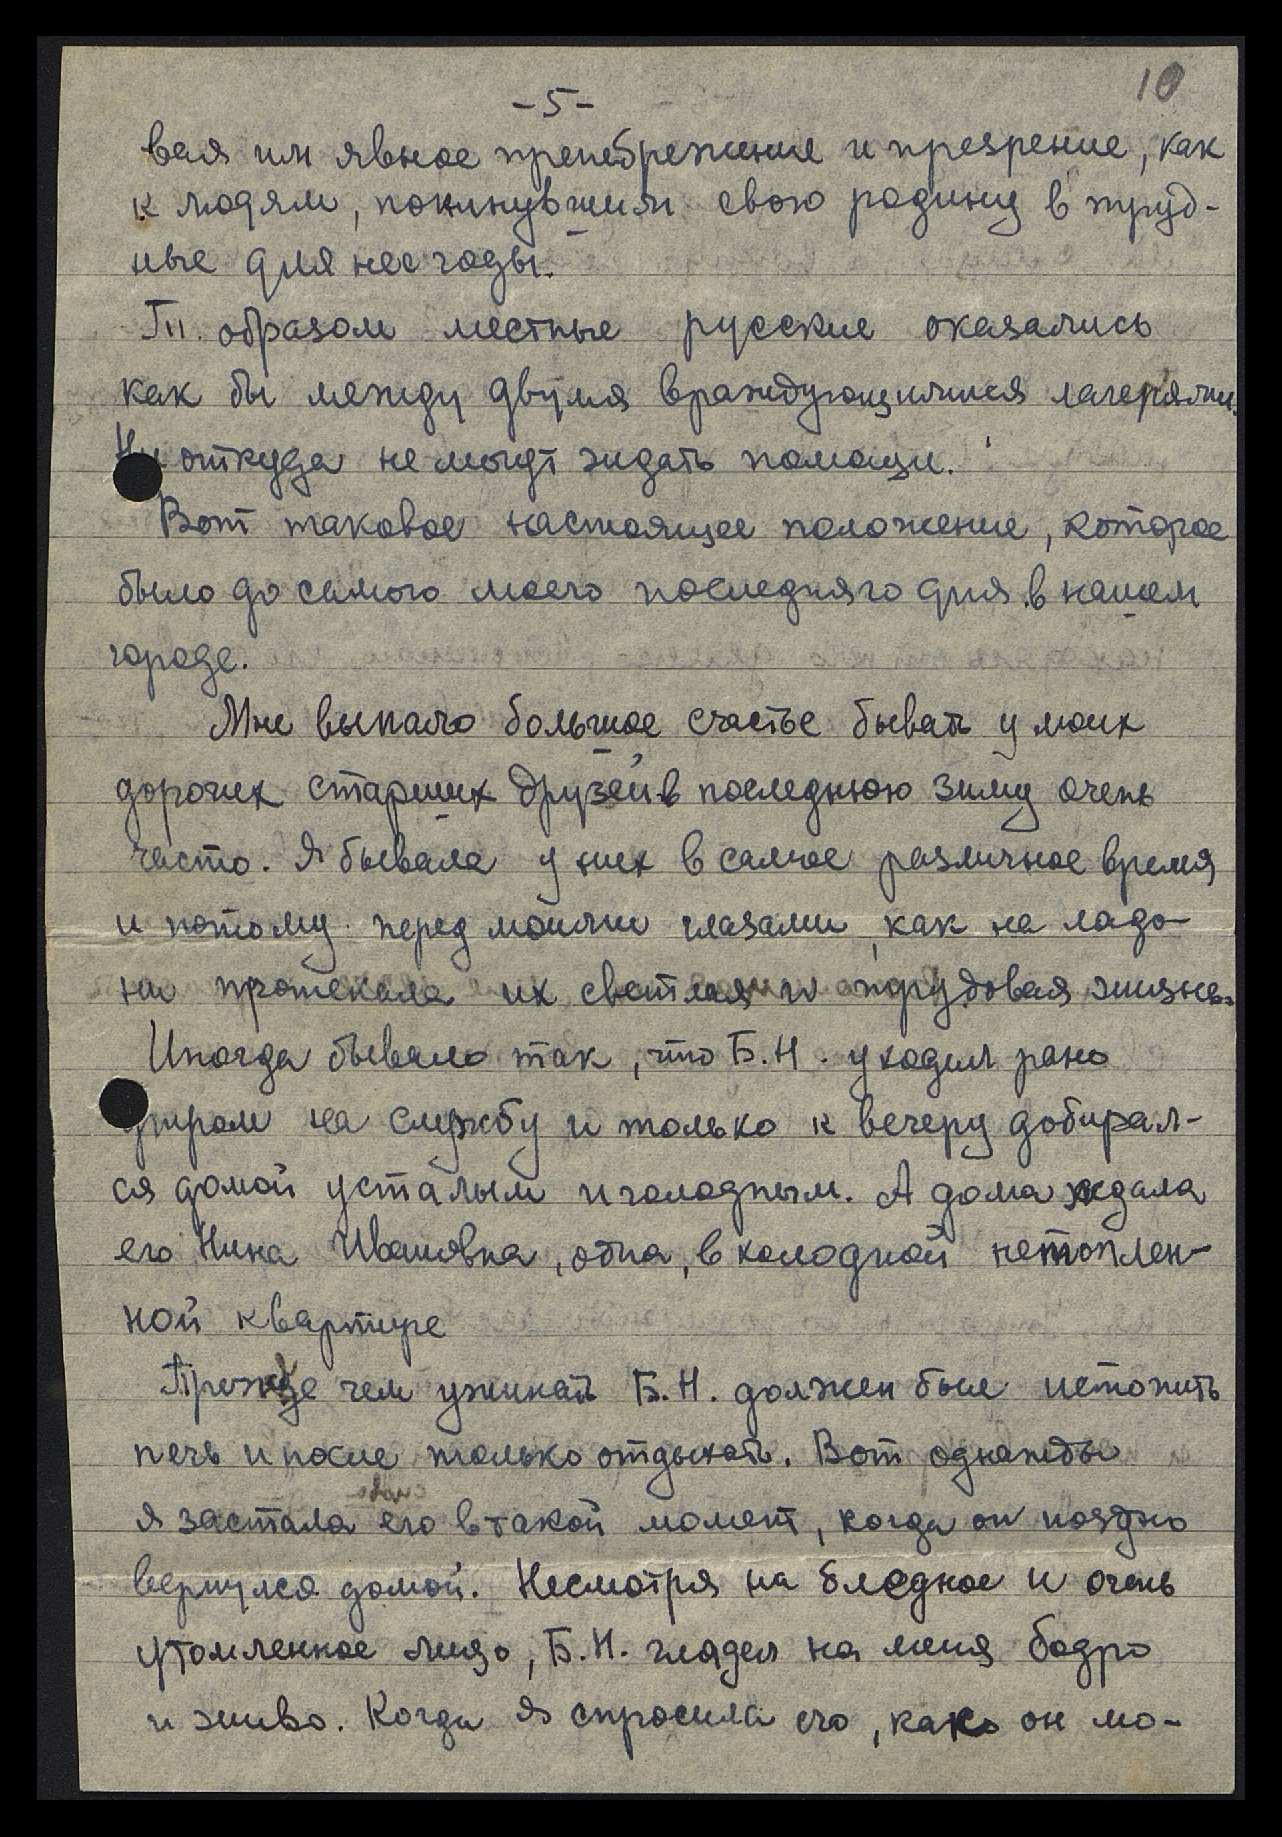 10
-5-
вая им явное пренебрежение и презрение, как
к людям, покинувшим свою родину в труд-
ные для нее годы.
Т. образом местные русские оказались
как бы между двумя враждующимися лагерями.
Ни откуда не могут ждать помощи.
Вот таковое настоящее положение, которое
было до самого моего последняго дня в нашем
городе.
Мне выпало большое счастье бывать у моих
дорогих старших друзей в последнюю зиму очень
часто. Я бывала у них в самое различное время
и потому перед моими глазами, как на ладо-
ни протекала их светлая и трудовая жизнь.
Иногда бывало так, что Б.Н. уходил рано
утром на службу и только к вечеру добирал-
ся домой усталым и голодным. А дома ждала
его Нина Ивановна, одна, в холодной нетоплен-
ной квартире
Прежде чем ужинать Б.Н. должен был истопить
печь и после только отдыхать. Вот однажды
снова
я застала его в такой момент, когда он поздно
вернулся домой. Несмотря на бледное и очень
утомленное лицо, Б.Н. глядел на меня бодро
и живо. Когда я спросила его, как он мо-